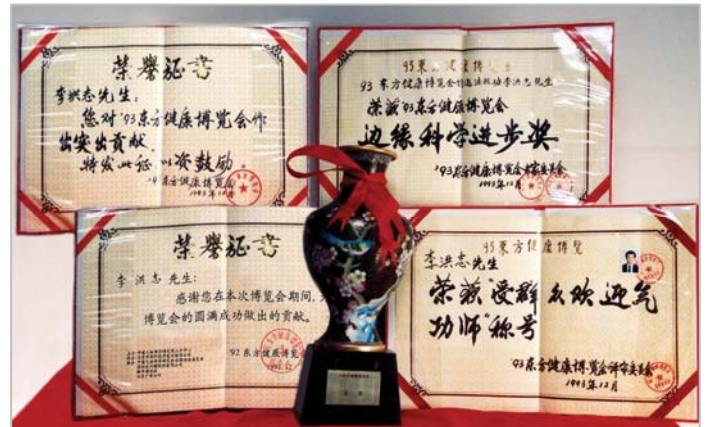 荣誉证书
李洪志先生:
您对'93东方健康博览会作
出突出贡献、
特发此证,以资鼓励。
'93东方健康博览会
1993年12月
93东方健康博览会
93东方健康博览会
李洪志先生
荣获'93东方健康博览会
边缘科学进步奖
'93东方健康博览会
1993年12月
荣誉证书
李洪志先生:
感谢您在本次博览会期间,
博览会的圆满成功做出的贡献。
'92东方健康博览
1992.12
93东方健康博览
李洪志先生
荣获受群众欢迎气
功师"称号
'93东方健康博览会评审委员会
1993年12月